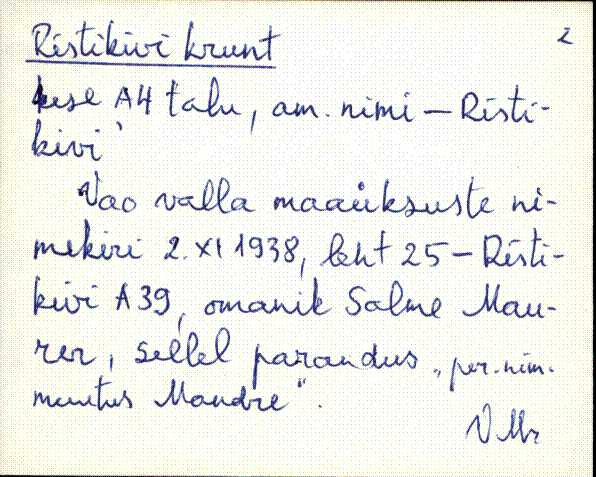 Ristikivi krunt 2
kese A4 talu, am. nimi – Risti-
kivi
Vao valla maaüksuste ni-
mekiri 2. XI 1938, leht 25 – Risti-
kivi A39, omanik Salme Mau-
rer, sellel parandus „per. nim.
muutus Mandre".